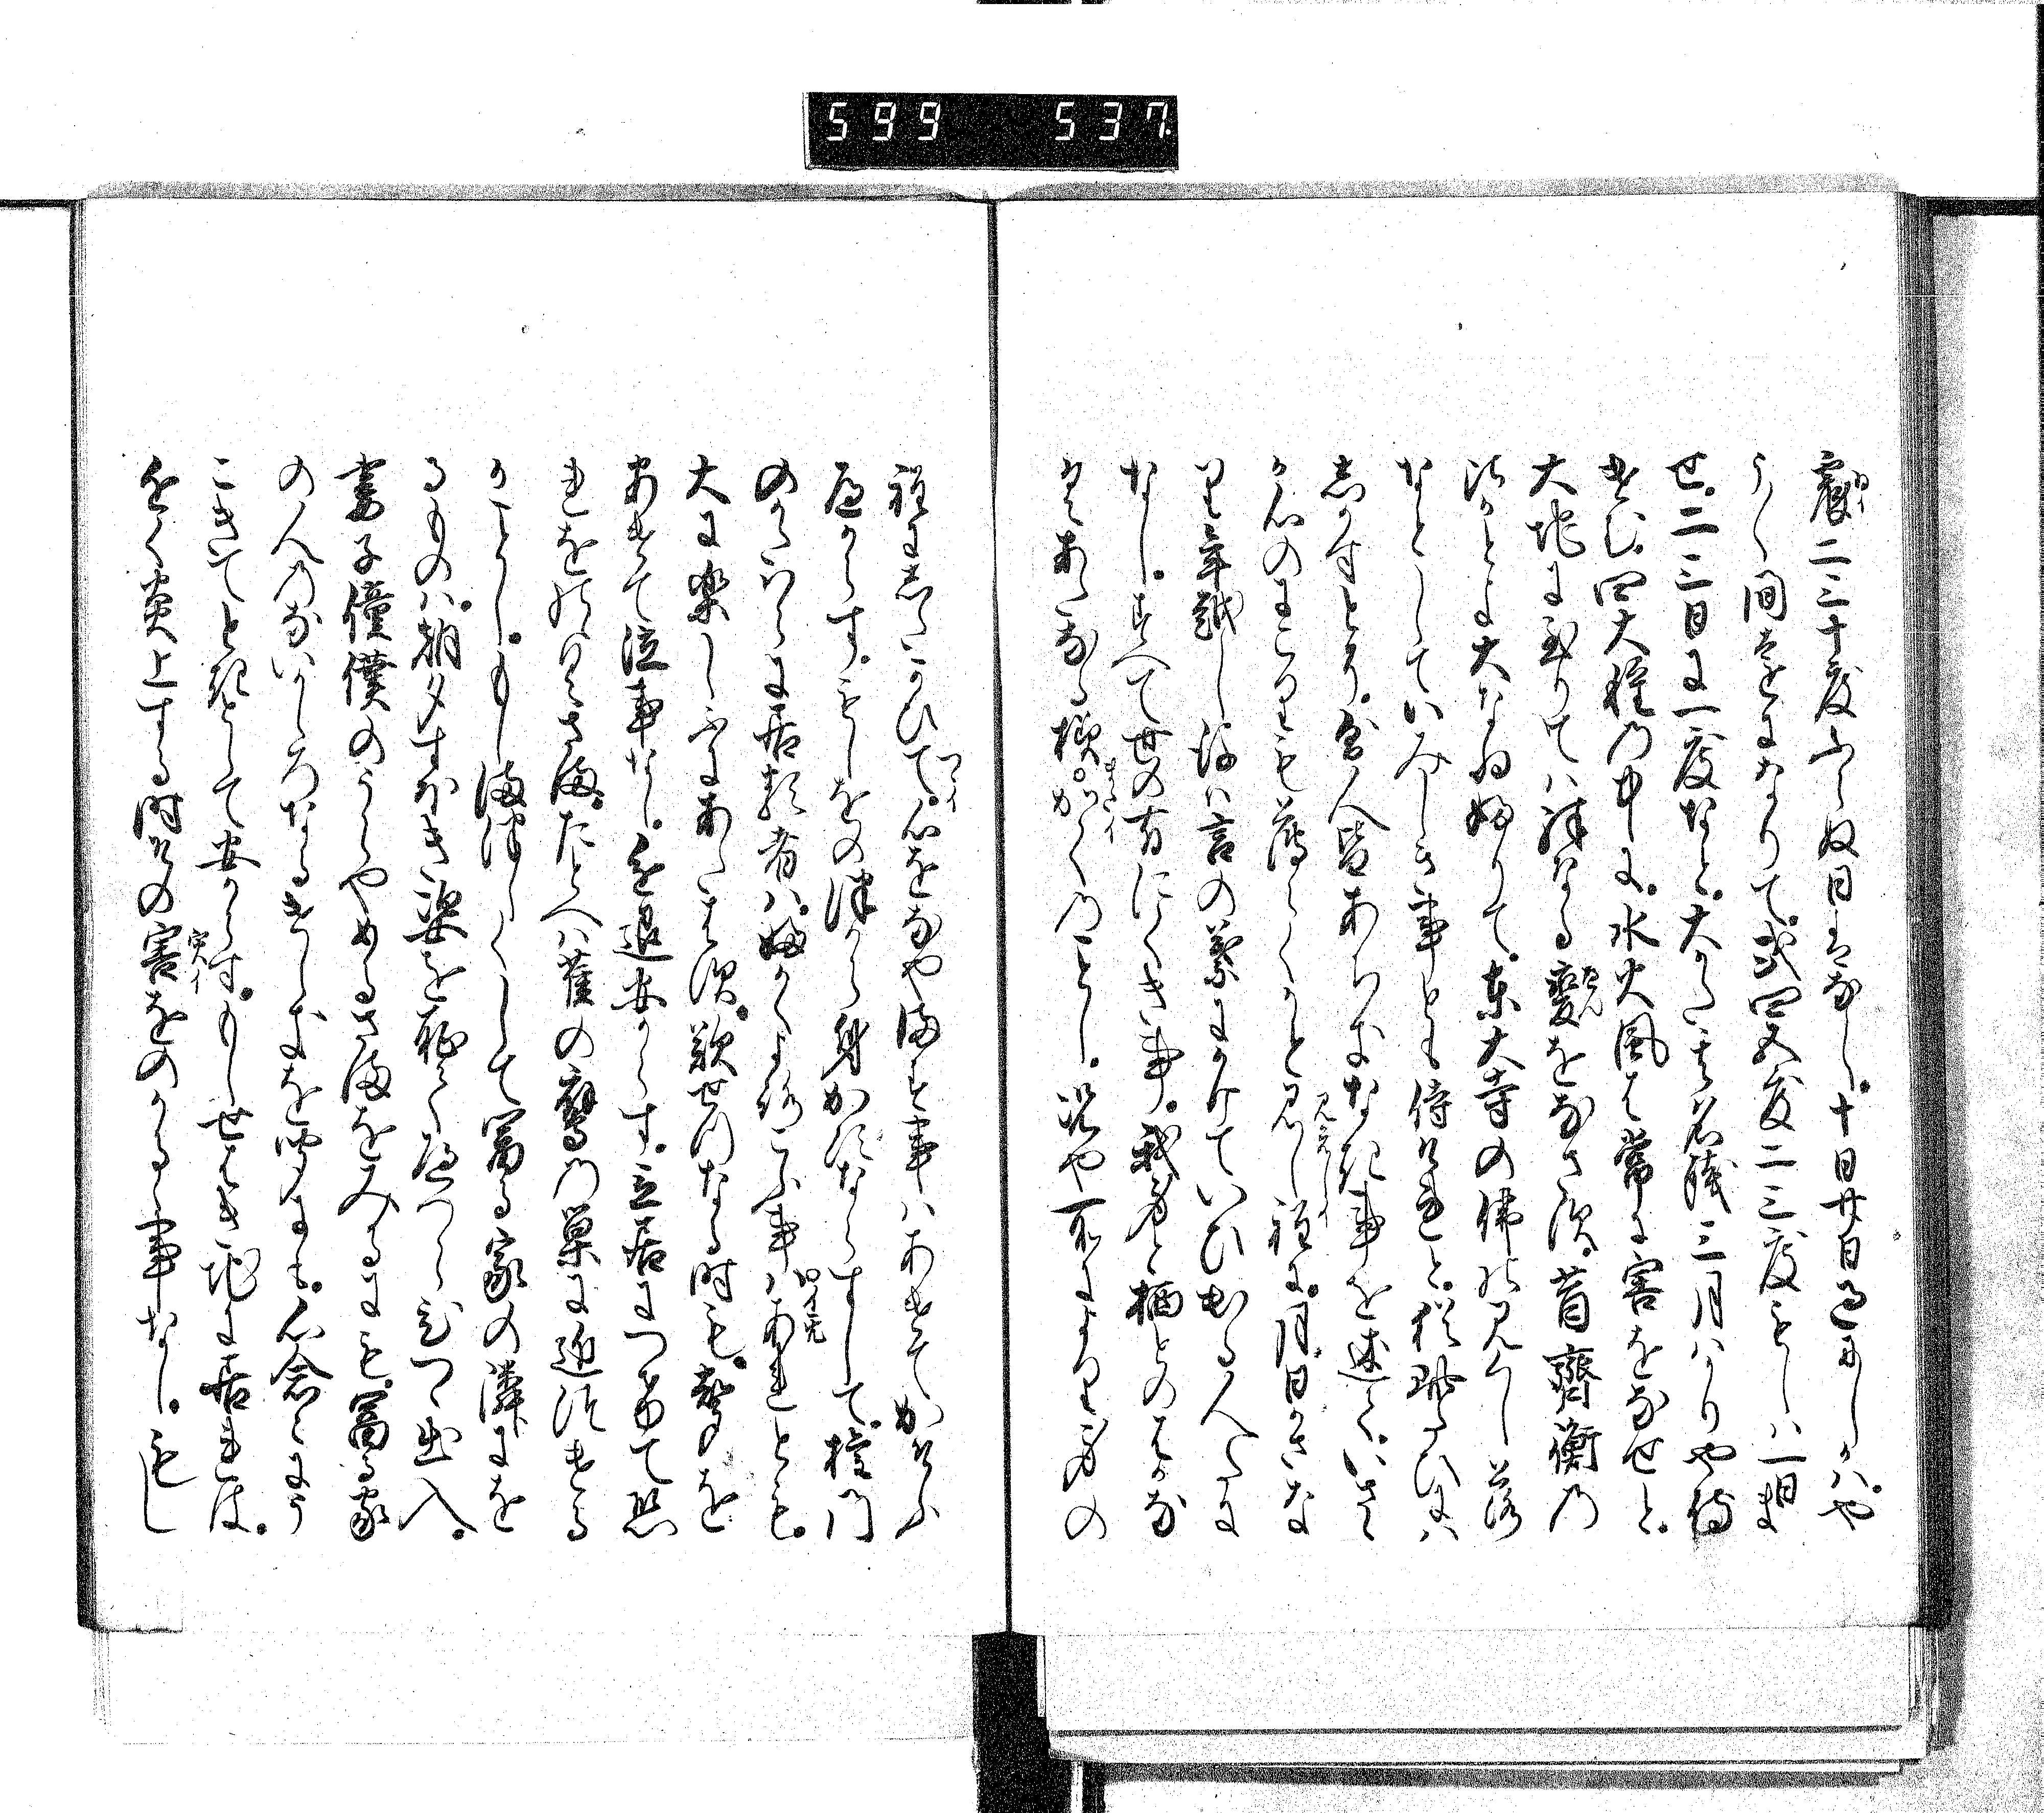 599　537
震二三十度ふらぬ日はなし。十日廿日過にしかハ。や
うく間遠になりて。或四五度二三度もしハ一日ま
せ。二三日に一度なと。大かた其名残三月はかりや侍
けむ。四大種の中に。水火風は常に害をなせと。
大地に至りてハ殊なる変をなさす。昔齊衡の
比かとよ大なゐふりて。東大寺の佛の見くし落
なとしていみしき事とも侍けれと。猶此たひにハ
しかすとそ。則人皆あちきなき事を述て。いさゝ
か心のにこりも薄らくかと見し程に。月日かさな
り年越し後ハ言の葉にかけていひ出る人たに
なし。すへて世の有にくき事。我身と栖とのはかな
くあたなる様。かくのことし。況や所により身の
程にしたかひて。心をなやます事ハあけてかそふ
へからす。もしをのつから身かすならすして。権門
のかたはらに居る者ハ。ふかくよろこふ事ハあれとも。
大に楽しふにあたはす。歎せつなる時も。声を
あけて泣事なし。進退安からす。立居につけて恐
れをのゝくさま。たとへハ雀の鷹の巣に近つける
かことし。もしまつしくして冨る家の隣にを
るものハ。朝夕すほき姿を恥てへつらひつゝ出入。
妻子僮僕のうらやめるさまをみるにも。冨る家
の人のないかしろなるけしきを聞にも。心念々にう
こきてときとして安からす。もしせはき地に居れは。
近く炎上する時其の害をのかるゝ事なし。もし